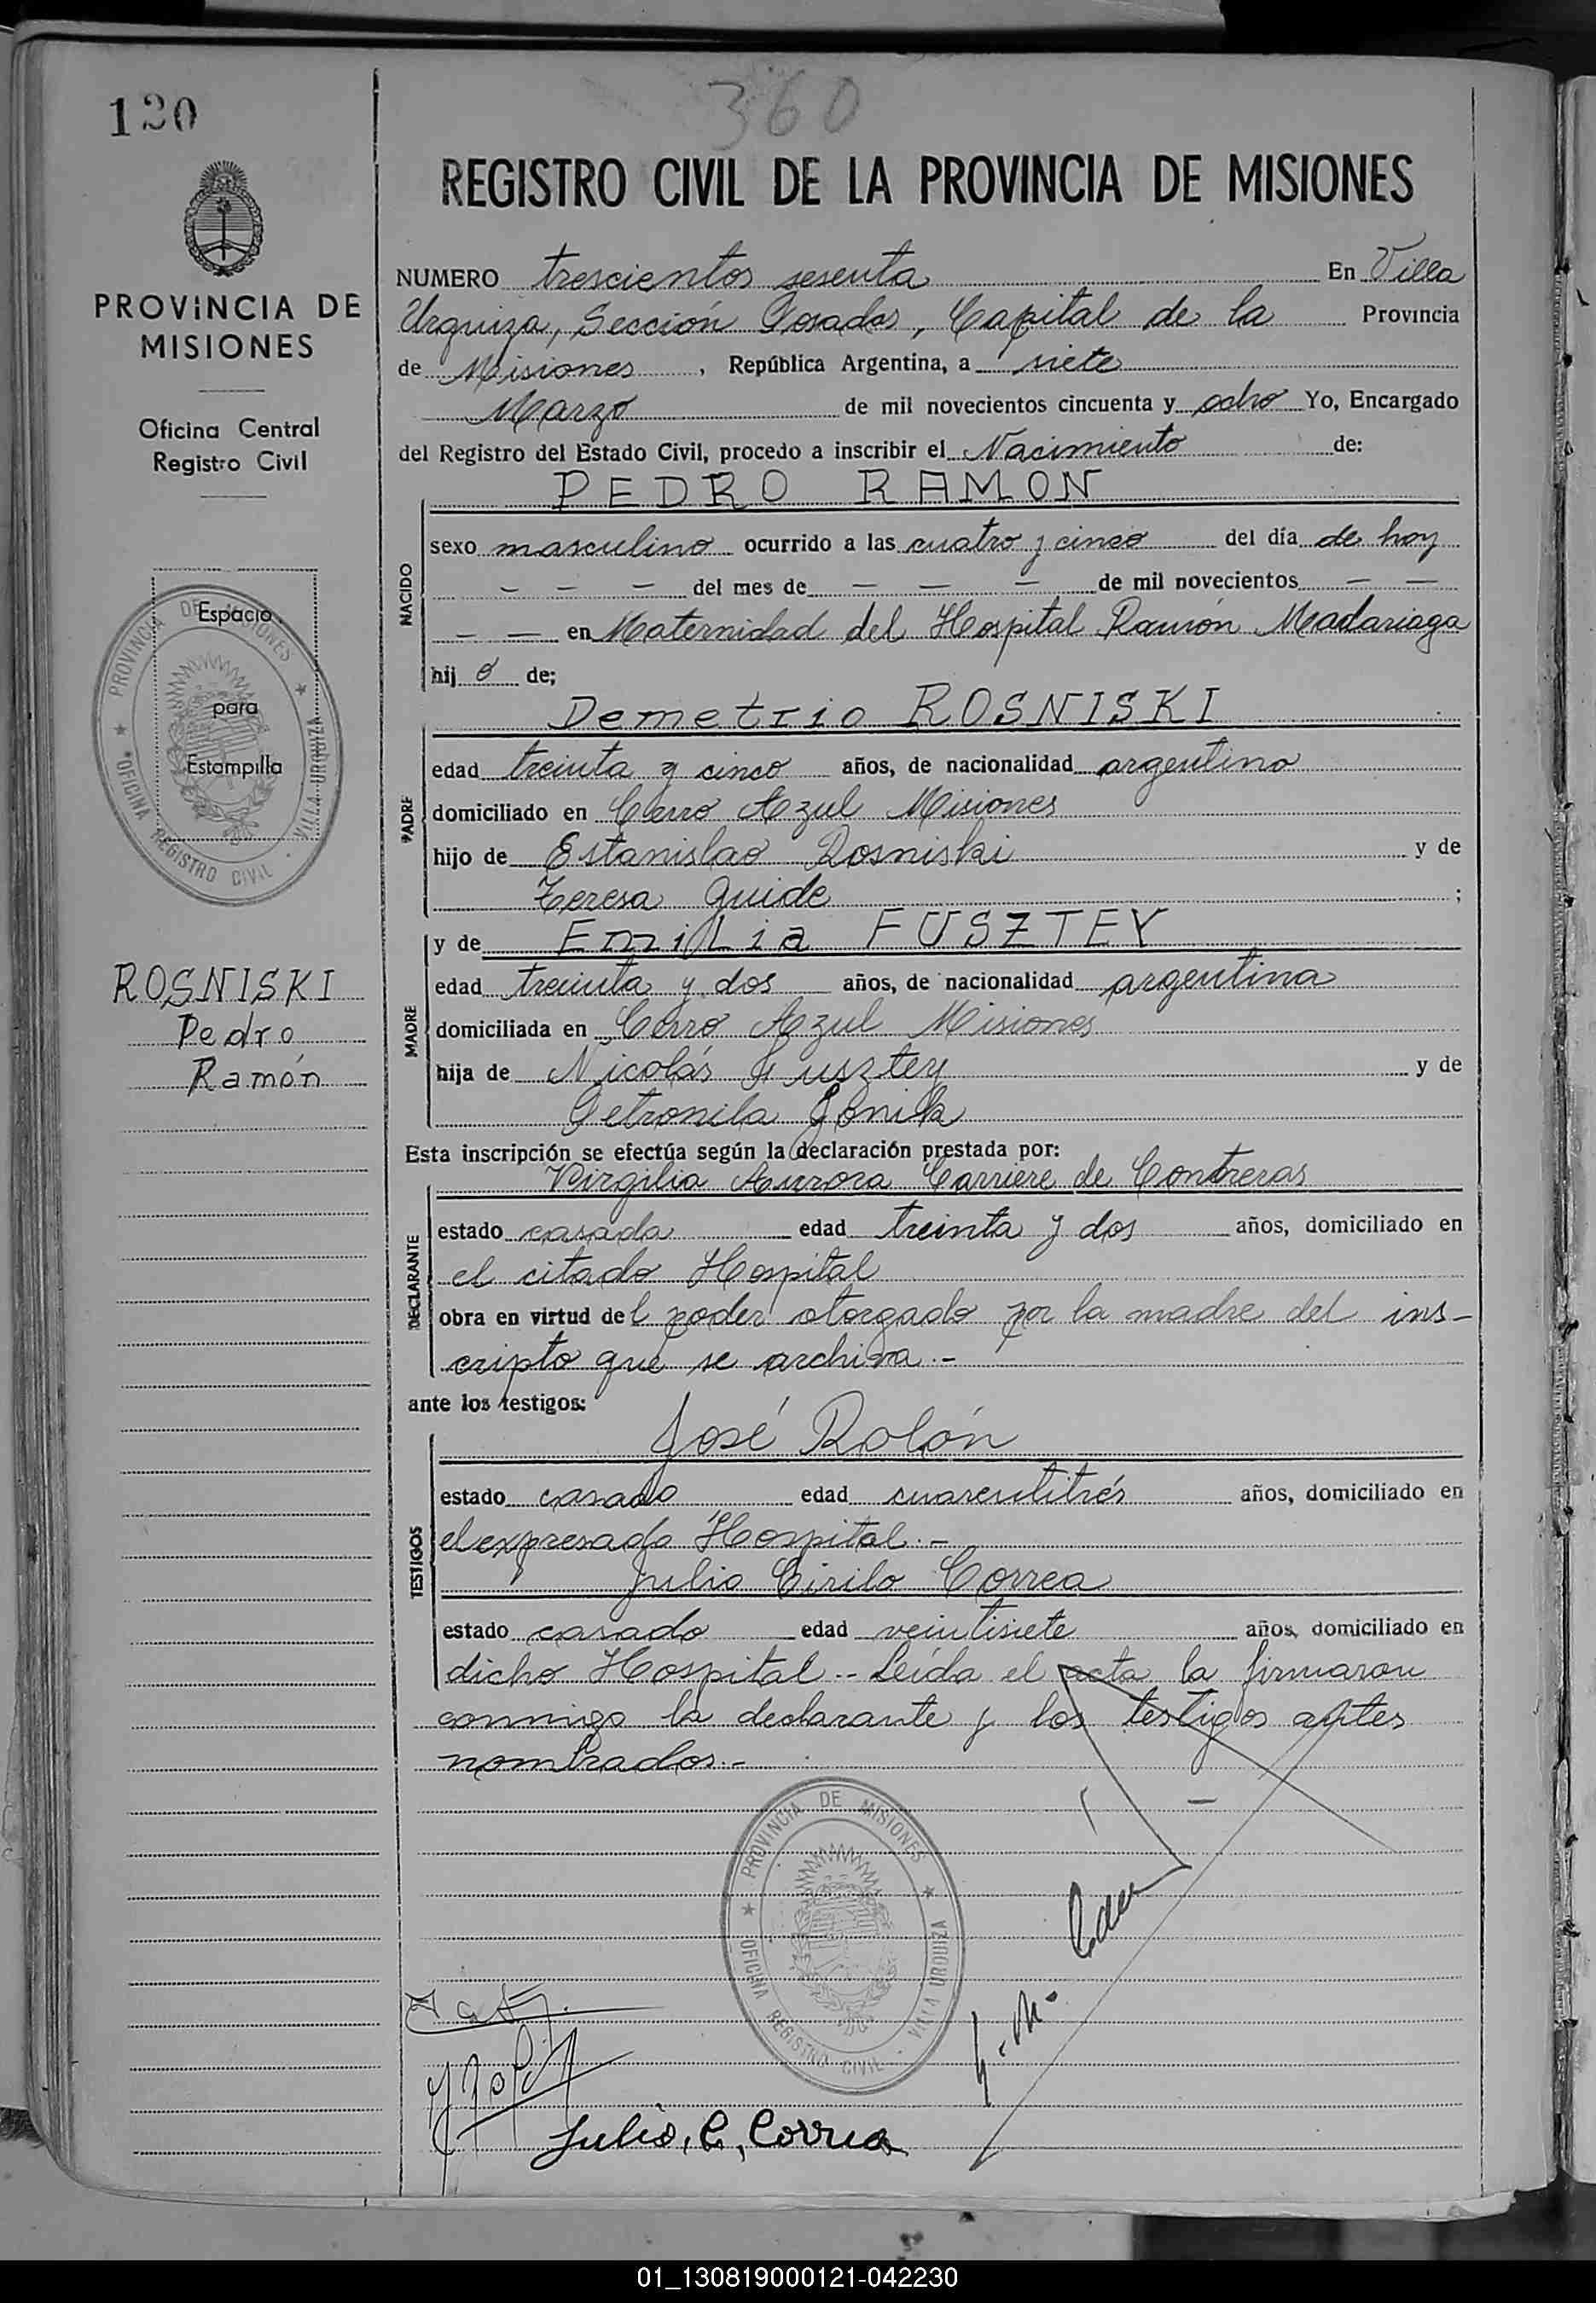 120
360
REGISTRO CIVIL DE LA PROVINCIA DE MISIONES
PROVINCIA DE
MISIONES
Oficina Central
Registro Civil
Espacio
para
Estampilla
PROVINCIA DE MISIONES
OFICINA REGISTRO CIVIL - VILLA URQUIZA
ROSNISKI
Pedro
Ramón
NUMERO trescientos sesenta En Villa
Urquiza, Sección Posadas, Capital de la Provincia
de Misiones, República Argentina, a siete
Marzo de mil novecientos cincuenta y ocho Yo, Encargado
del Registro del Estado Civil, procedo a inscribir el Nacimiento de:
PEDRO RAMON
NACIDO
sexo masculino ocurrido a las cuatro y cinco del día de hoy
— — — del mes de — — — de mil novecientos — —
— — en Maternidad del Hospital Ramón Madariaga
hij o de;
PADRE
Demetrio ROSNISKI
edad treinta y cinco años, de nacionalidad argentino
domiciliado en Cerro Azul Misiones
hijo de Estanislao Rosniski y de
Teresa Guide ;
MADRE
y de Emilia FUSZTEY
edad treinta y dos años, de nacionalidad argentina
domiciliada en Cerro Azul Misiones
hija de Nicolás Fusztey y de
Petronila
Esta inscripción se efectúa según la declaración prestada por:
DECLARANTE
Virgilia Aurora Carriere de Contreras
estado casada edad treinta y dos años, domiciliado en
el citado Hospital
obra en virtud del poder otorgado por la madre del ins-
cripto que se archiva.-
ante los testigos:
TESTIGOS
José Rolón
estado casado edad cuarentitrés años, domiciliado en
el expresado Hospital.-
Julio Cirilo Correa
estado casado edad veintisiete años, domiciliado en
dicho Hospital.- Leída el acta la firmaron
conmigo la declarante y los testigos antes
nombrados.-
PROVINCIA DE MISIONES
OFICINA REGISTRO CIVIL - VILLA URQUIZA
Julio, C, Correa
01_130819000121-042230